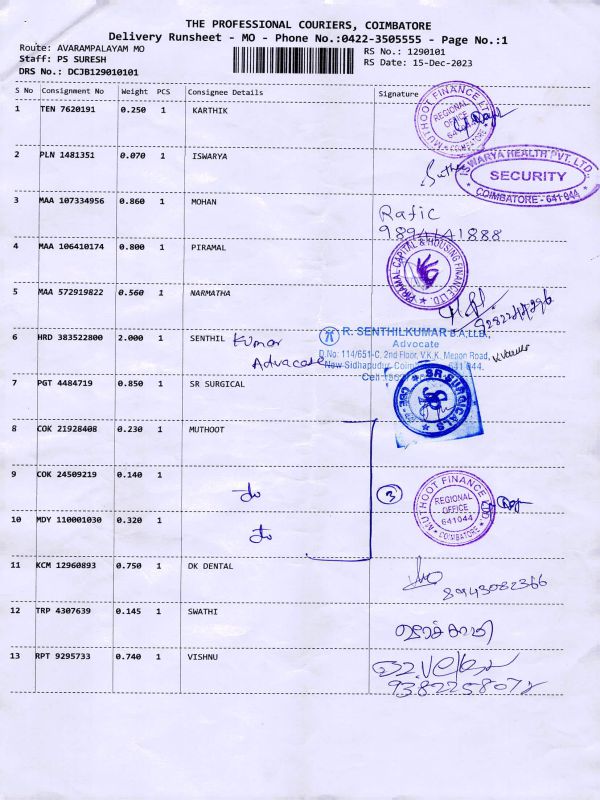 THE PROFESSIONAL COURIERS, COIMBATORE
Delivery Runsheet - MO - Phone No.:0422-3505555 - Page No.:1
Route: AVARAMPALAYAM MO
RS No.: 1290101
Staff: PS SURESH
RS Date: 15-Dec-2023
DRS No.: DCJB129010101
S No Consignment No Weight PCS Consignee Details Signature
1 TEN 7620191 0.250 1 KARTHIK
MUTHOOT FINANCE LTD
REGIONAL
OFFICE
COIMBATORE
2 PLN 1481351 0.070 1 ISWARYA
ISWARYA HEALTH PVT. LTD.
SECURITY
COIMBATORE - 641 044
3 MAA 107334956 0.860 1 MOHAN
Rafic
9894141888
4 MAA 106410174 0.800 1 PIRAMAL
PIRAMAL CAPITAL & HOUSING FINANCE LTD
5 MAA 572919822 0.560 1 NARMATHA
6 HRD 383522800 2.000 1 SENTHIL Kumar
Advacate
R. SENTHILKUMAR B.A,LLB.,
Advocate
D.No: 114/651-C, 2nd Floor, V.K.K. Menon Road,
New Sidhapudur, Coim 641 044.
7 PGT 4484719 0.850 1 SR SURGICAL
SR SURGICALS
CBE-
8 COK 21928408 0.230 1 MUTHOOT
9 COK 24509219 0.140 1 do
3
MUTHOOT FINANCE LTD
REGIONAL
OFFICE
641044
COIMBATORE
10 MDY 110001030 0.320 1 do
11 KCM 12960893 0.750 1 DK DENTAL
8943082366
12 TRP 4307639 0.145 1 SWATHI
13 RPT 9295733 0.740 1 VISHNU
9382258072